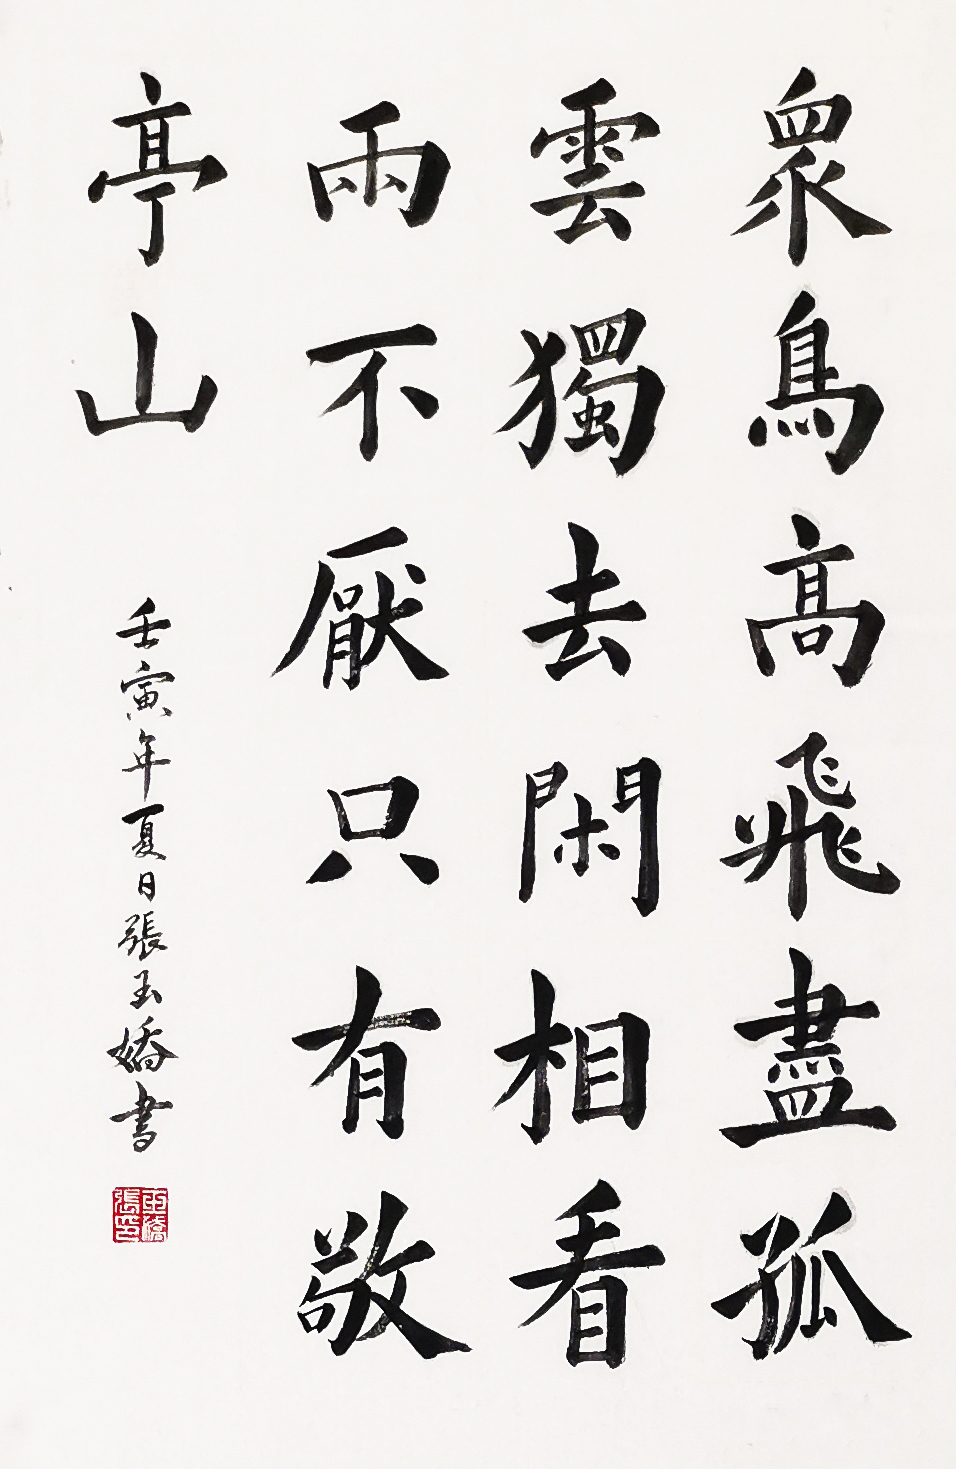 眾鳥高飛盡孤
雲獨去閑相看
兩不厭只有敬
亭山
壬寅年夏日張玉嬌書
張玉嬌印